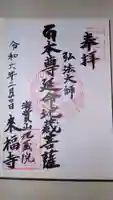 奉拝
弘法大師
本尊延命地蔵菩薩
瀧寳山地蔵院
来福寺
令和六年三月吉日